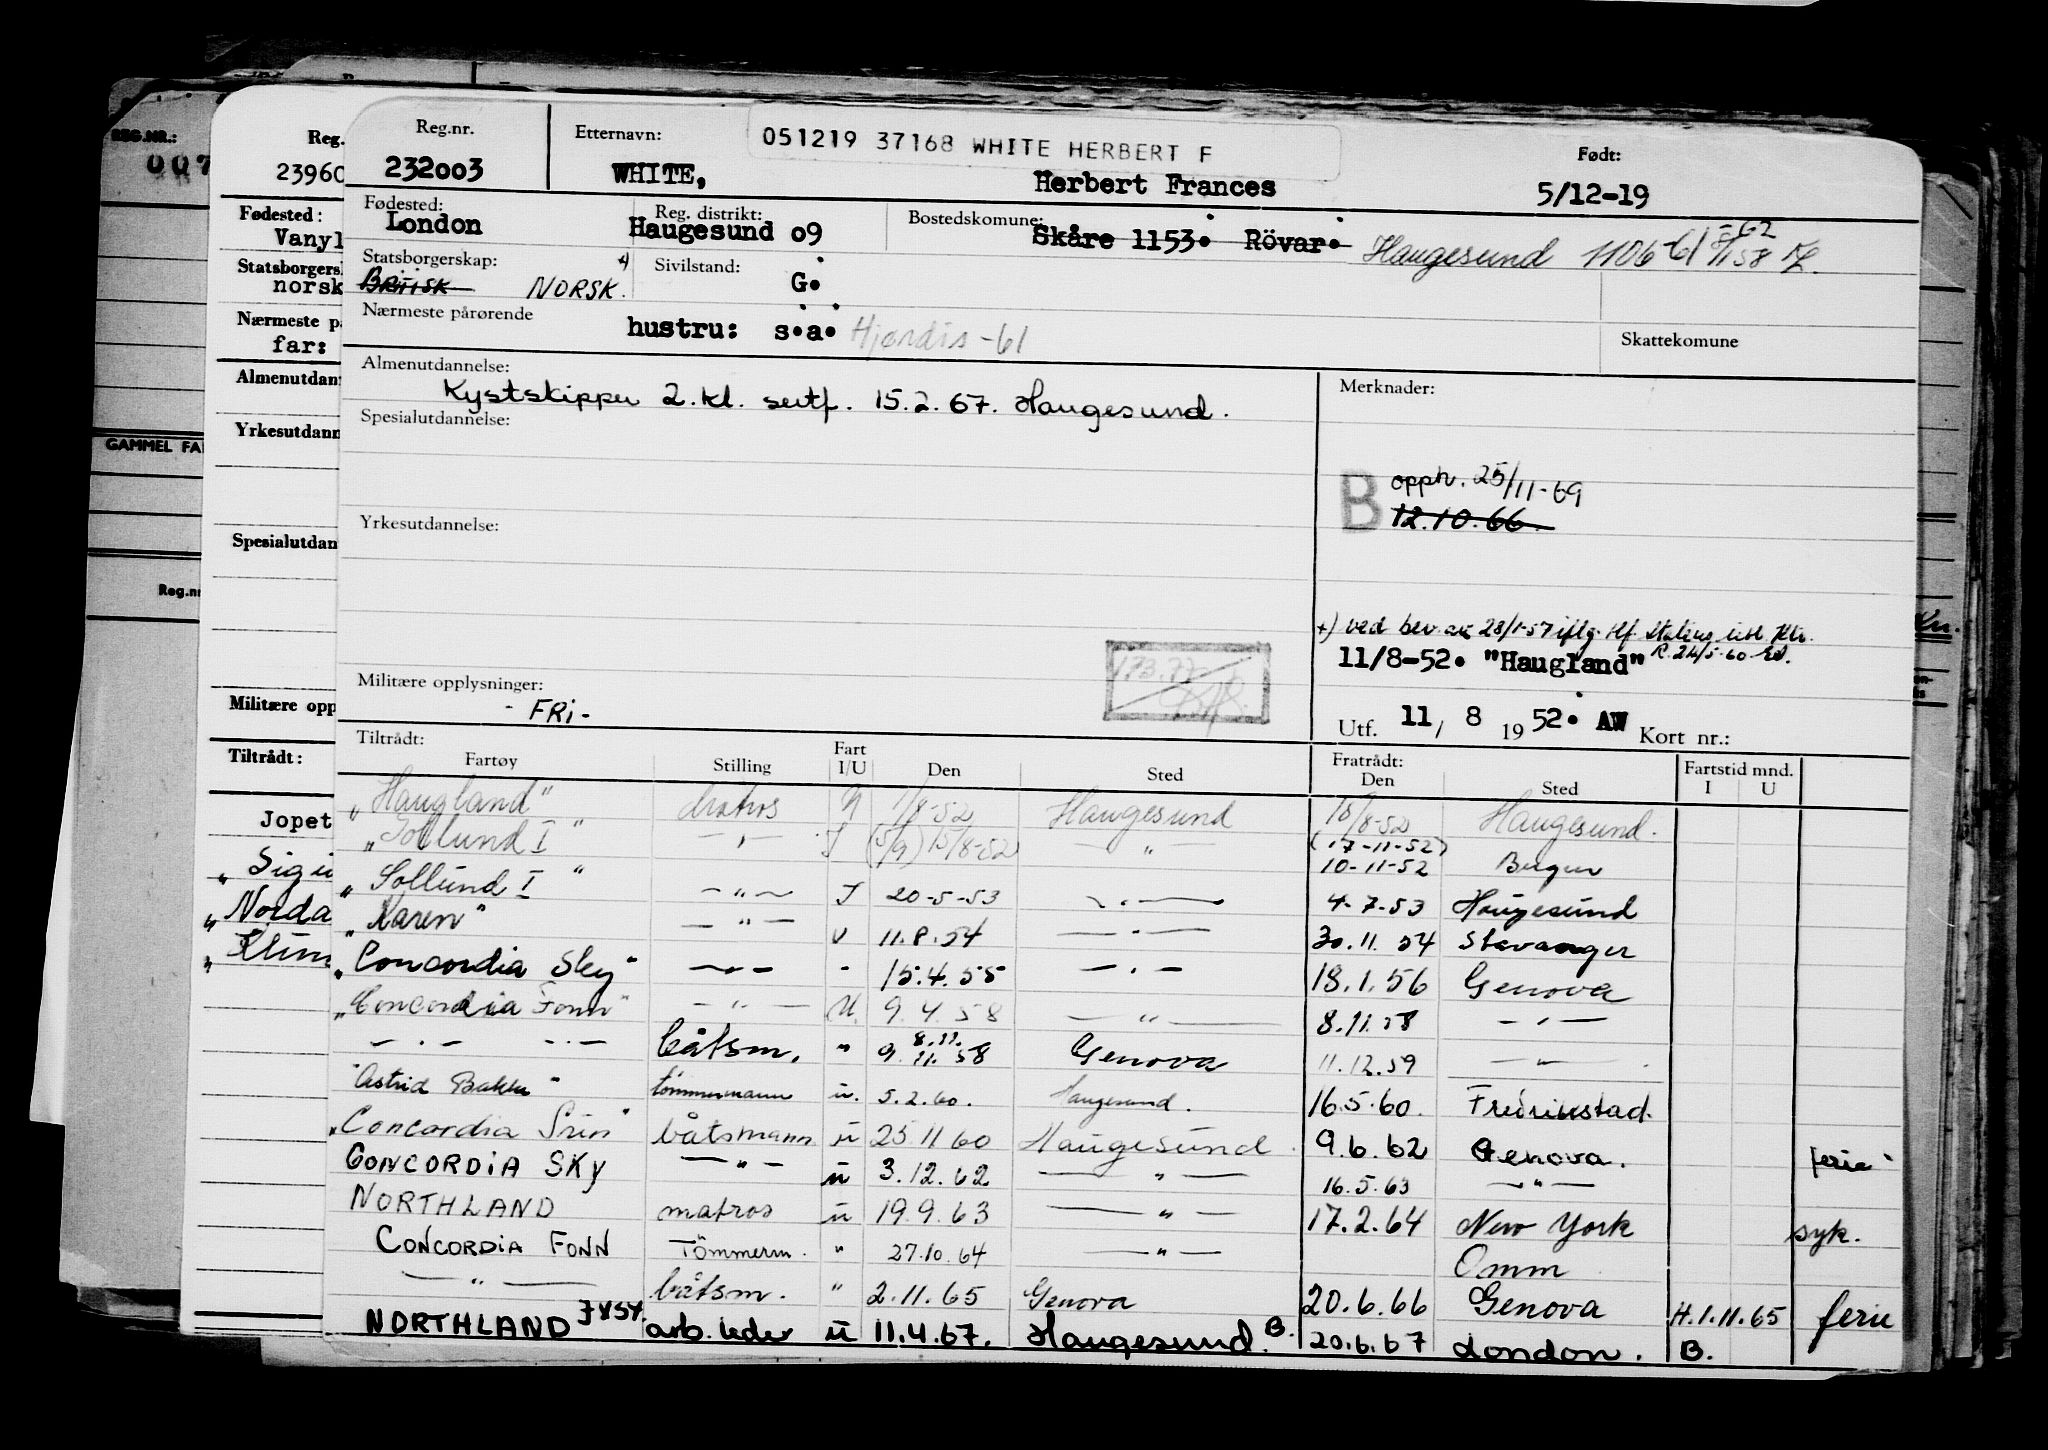 REG.NR.:
007
GAMMEL FA
Reg.nr
Reg.
23960
Fødested:
Vanyl
Statsborgersk
norsk
Nærmeste på
far:
Almenutdann
Yrkesutdann
Spesialutdan
Militære opp
Tiltrådt:
Jopet
„Norda
Reg.nr. Etternavn: 051219 37168 WHITE HERBERT F Født:
232003 WHITE, Herbert Frances 5/12-19
Fødested: Reg. distrikt: Bostedskommune:
London Haugesund 09 Skåre 1153. Rövar. Haugesund 1106 61 -62
Statsborgerskap: Sivilstand:
Britisk NORSK. G.
Nærmeste pårørende
hustru: s.a. Hjørdis -61 Skattekomune
Almenutdannelse: Merknader:
Kystskipper 2.kl. sertf. 15.2.67. Haugesund.
Spesialutdannelse:
B opph. 25/11-69
12.10.66.
Yrkesutdannelse:
+) ved bev. av 28/1-57 iflg.
11/8-52. "Haugland" R. 24/5-60
173.77
Militære opplysninger:
- FRi -
Utf. 11/ 8 1952. AW Kort nr.:
Tiltrådt: Fratrådt: Fartstid mnd.
Fartøy Stilling Fart I/U Den Sted Den Sted I U
„Haugland" 1/8-52 Haugesund 15/8-52 Haugesund.
„Sollund I" — " — J (5/9) 15/8-52 — " — (17-11-52) 10-11-52 Bergen
„Sollund I" — " — J 20-5-53 — " — 4-7-53 Haugesund
„Karen" — " — U 11.8.54 — " — 30.11.54 Stavanger
„Concordia Sky" — " — - 15.4.55 — " — 18.1.56 Genova
„Concordia Fonn" — " — U. 9.4.58 — " — 8.11.58 — " —
— " — — " — båtsm. " 9.11.58 8.11. Genova 11.12.59 — " —
"Astrid Bakke" tømmermann u. 5.2.60. Haugesund. 16.5.60. Fredrikstad.
„Concordia båtsmann u 25.11 60 Haugesund. 9.6.62 Genova. ferie
CONCORDIA SKY — " — u 3.12.62 — " — 16.5.63 — " —
NORTHLAND matros u 19.9.63 — " — 17.2.64 New York syk.
CONCORDIA FONN Tömmerm. " 27.10.64 — " — Omm
— " — båtsm. " 2.11.65 Genova 20.6.66 Genova H.1.11.65 ferie
NORTHLAND arb. leder u 11.4.67. Haugesund. B. 20.6.67 London. B.